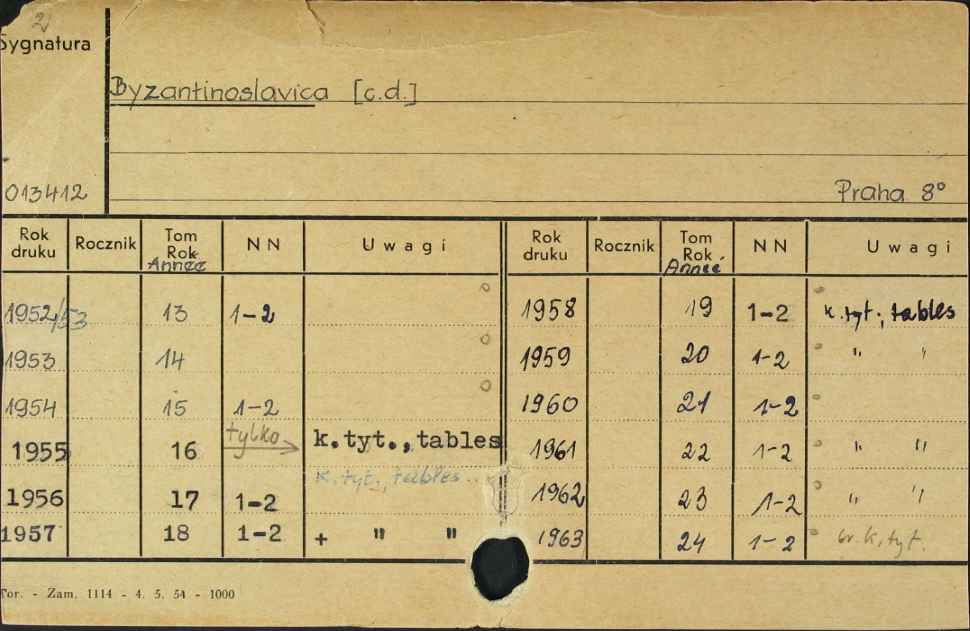 2
Sygnatura
Byzantinoslavica [c.d.]
013412
Praha 8°
Rok druku Rocznik Tom Rok Année NN Uwagi Rok druku Rocznik Tom Rok Année NN Uwagi
1952/53 13 1-2 1958 19 1-2 k. tyt., tables
1953 14 1959 20 1-2 " "
1954 15 1-2 1960 21 1-2
1955 16 tylko → k.tyt.,tables 1961 22 1-2 " "
1956 17 1-2 k. tyt., tables 1962 23 1-2 " "
1957 18 1-2 + " " 1963 24 1-2 br. k. tyt.
Tor. - Zam. 1114 - 4. 5. 54 - 1000